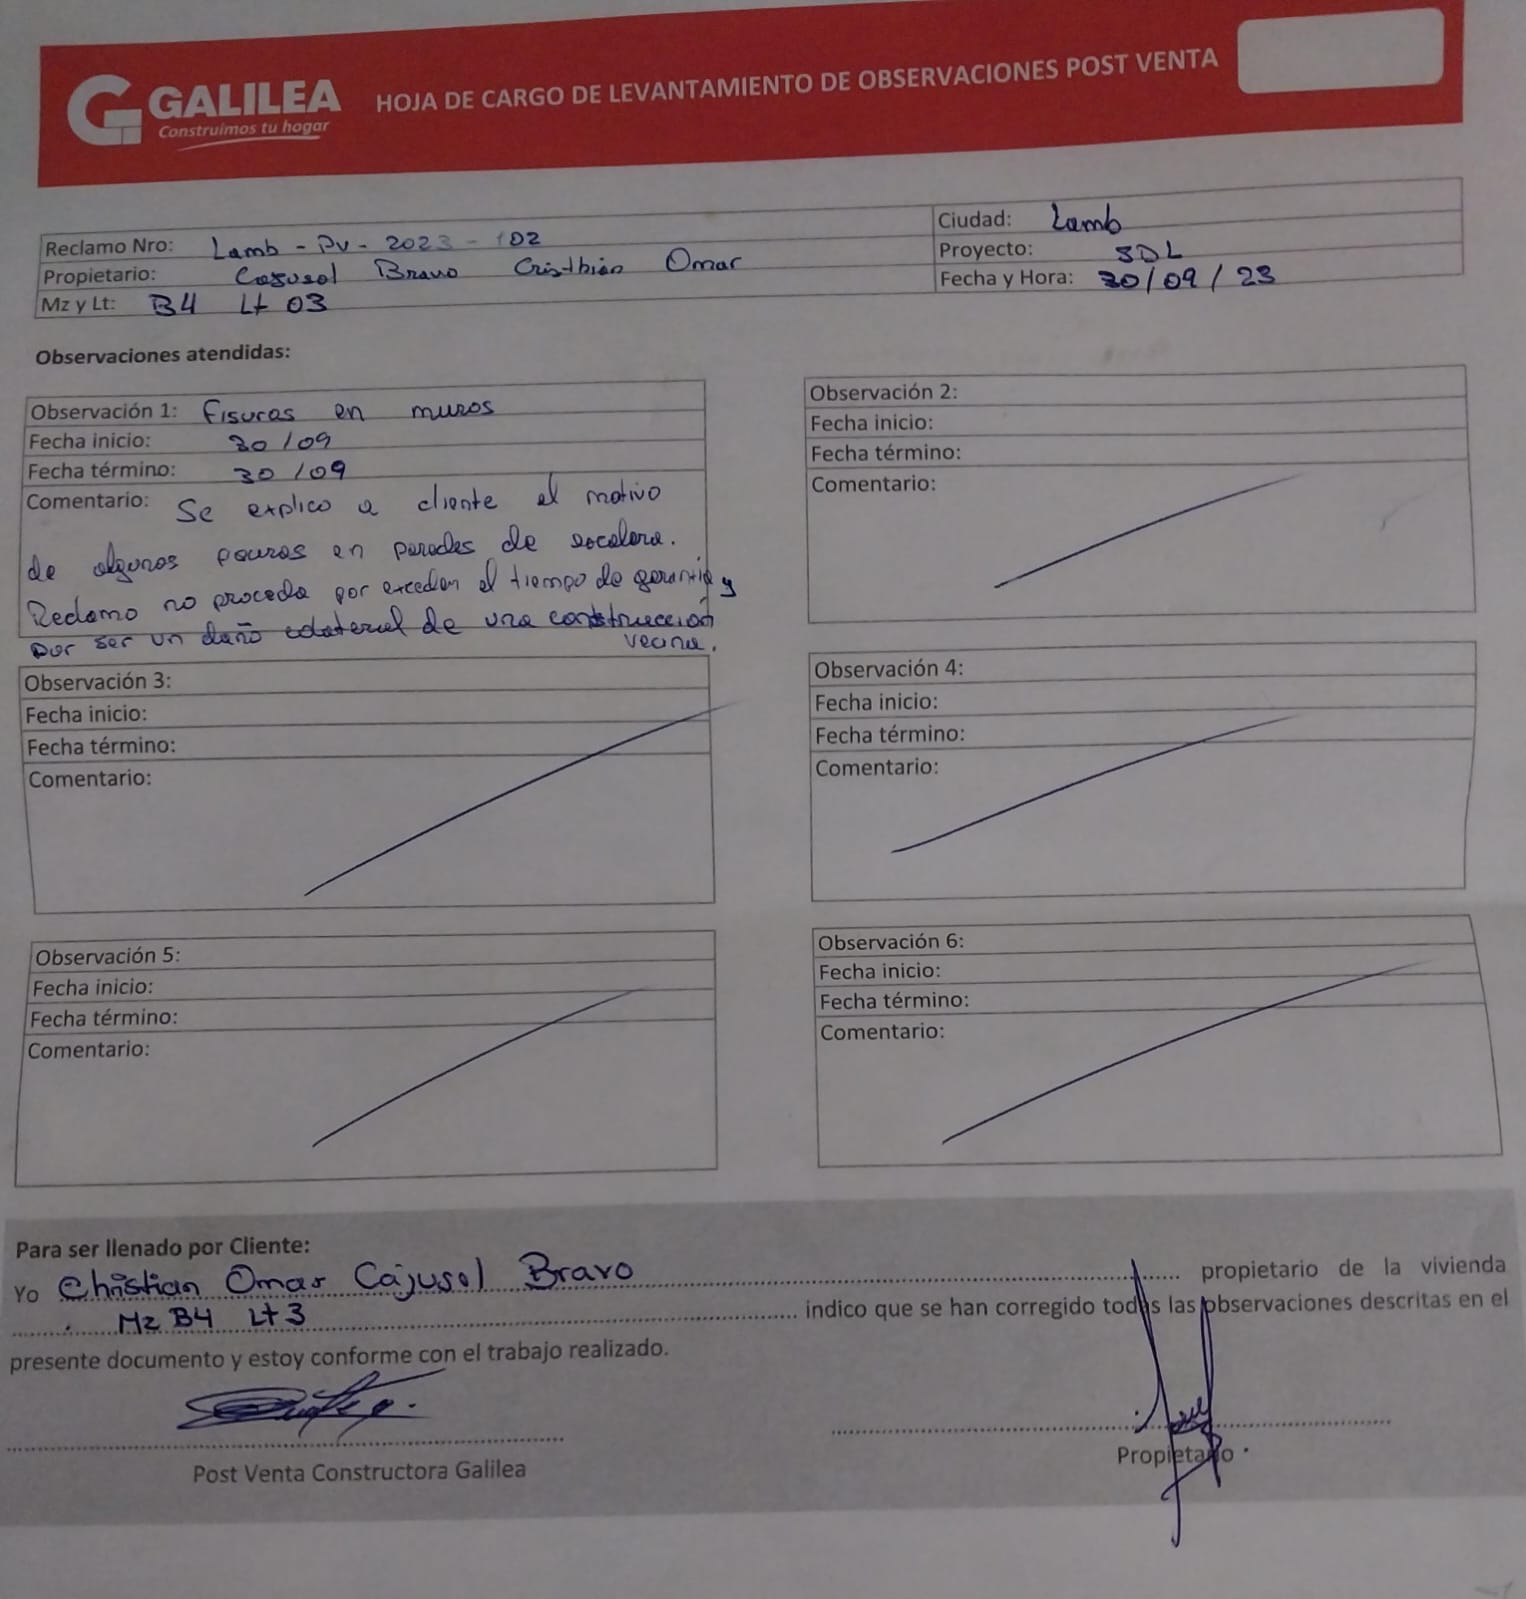 GALILEA
Construimos tu hogar
HOJA DE CARGO DE LEVANTAMIENTO DE OBSERVACIONES POST VENTA
Reclamo Nro: Lamb - PV - 2023 - 102
Propietario: Cajusol Bravo Cristhian Omar
Mz y Lt: B4 Lt 03
Ciudad: Lamb
Proyecto: SDL
Fecha y Hora: 30/09/23
Observaciones atendidas:
Observación 1: Fisuras en muros
Fecha inicio: 30/09
Fecha término: 30/09
Comentario: Se explico a cliente el motivo
de algunas en paredes de escalera.
Reclamo no procede por exceder el tiempo de garantia y
por ser un daño colateral de una construcción
vecina.
Observación 2:
Fecha inicio:
Fecha término:
Comentario:
Observación 3:
Fecha inicio:
Fecha término:
Comentario:
Observación 4:
Fecha inicio:
Fecha término:
Comentario:
Observación 5:
Fecha inicio:
Fecha término:
Comentario:
Observación 6:
Fecha inicio:
Fecha término:
Comentario:
Para ser llenado por Cliente:
Yo Christian Omar Cajusol Bravo propietario de la vivienda
Mz B4 Lt 3 indico que se han corregido todas las observaciones descritas en el
presente documento y estoy conforme con el trabajo realizado.
Post Venta Constructora Galilea
Propietario